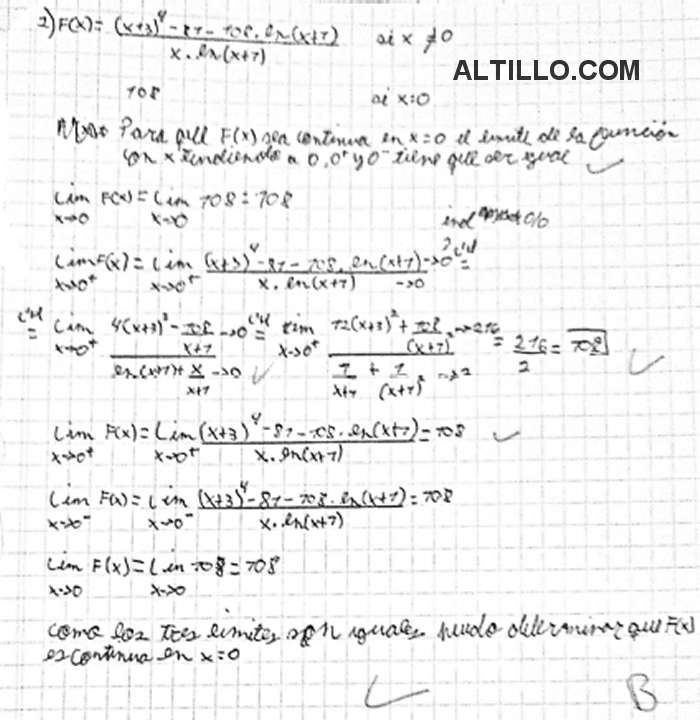 2) F(x) = ((x+3)^4 - 81 - 108 . ln(x+1)) / (x . ln(x+1)) si x ≠ 0
ALTILLO.COM
108 si x=0
Para que F(x) sea continua en x=0 el limite de la función
con x tendiendo a 0, 0⁺ y 0⁻ tiene que ser igual
Lim x→0 F(x) = Lim x→0 108 = 108
ind 0/0
Lim x→0⁺ F(x) = Lim x→0⁺ ((x+3)^4 - 81 - 108 . ln(x+1)) →0 / (x . ln(x+1)) →0 = L'H
L'H = Lim x→0⁺ (4(x+3)^3 - 108/(x+1)) →0 / (ln(x+1) + x/(x+1)) →0 = L'H Lim x→0⁺ (12(x+3)^2 + 108/(x+1)^2) →216 / (1/(x+1) + 1/(x+1)^2) →2 = 216/2 = 108
Lim x→0⁺ F(x) = Lim x→0⁺ ((x+3)^4 - 81 - 108 . ln(x+1)) / (x . ln(x+1)) = 108
Lim x→0⁻ F(x) = Lim x→0⁻ ((x+3)^4 - 81 - 108 . ln(x+1)) / (x . ln(x+1)) = 108
Lim x→0 F(x) = Lim x→0 108 = 108
como los tres limites son iguales puedo determinar que F(x)
es continua en x=0
B